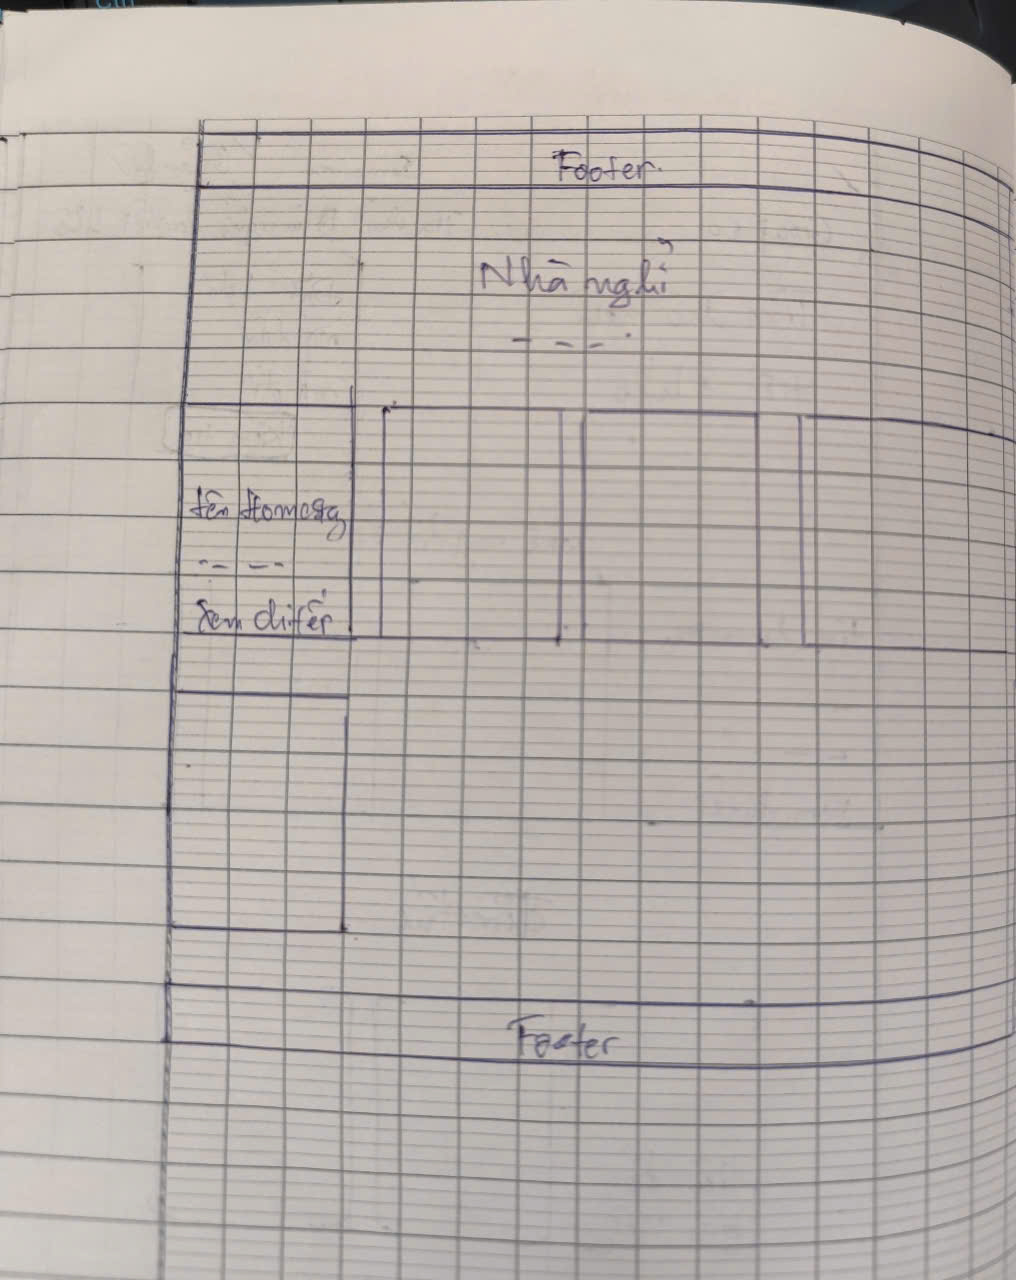 Footer.
Nhà nghỉ
tên Homestay
Xem điểm
Footer